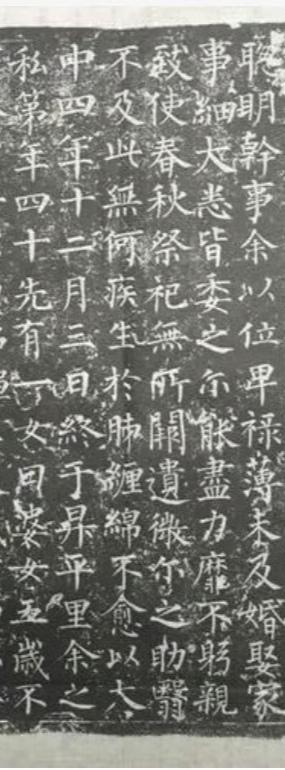 聰明幹事余以位卑祿薄未及婚娶家
事細大悉皆委之尔能盡力靡不躬親
致使春秋祭祀無所闕遺微尔之助翳
不及此無何疾生於肺纏綿不愈以大
中四年十二月三日終于昇平里余之
私第年四十先有一女曰婆女五歲不